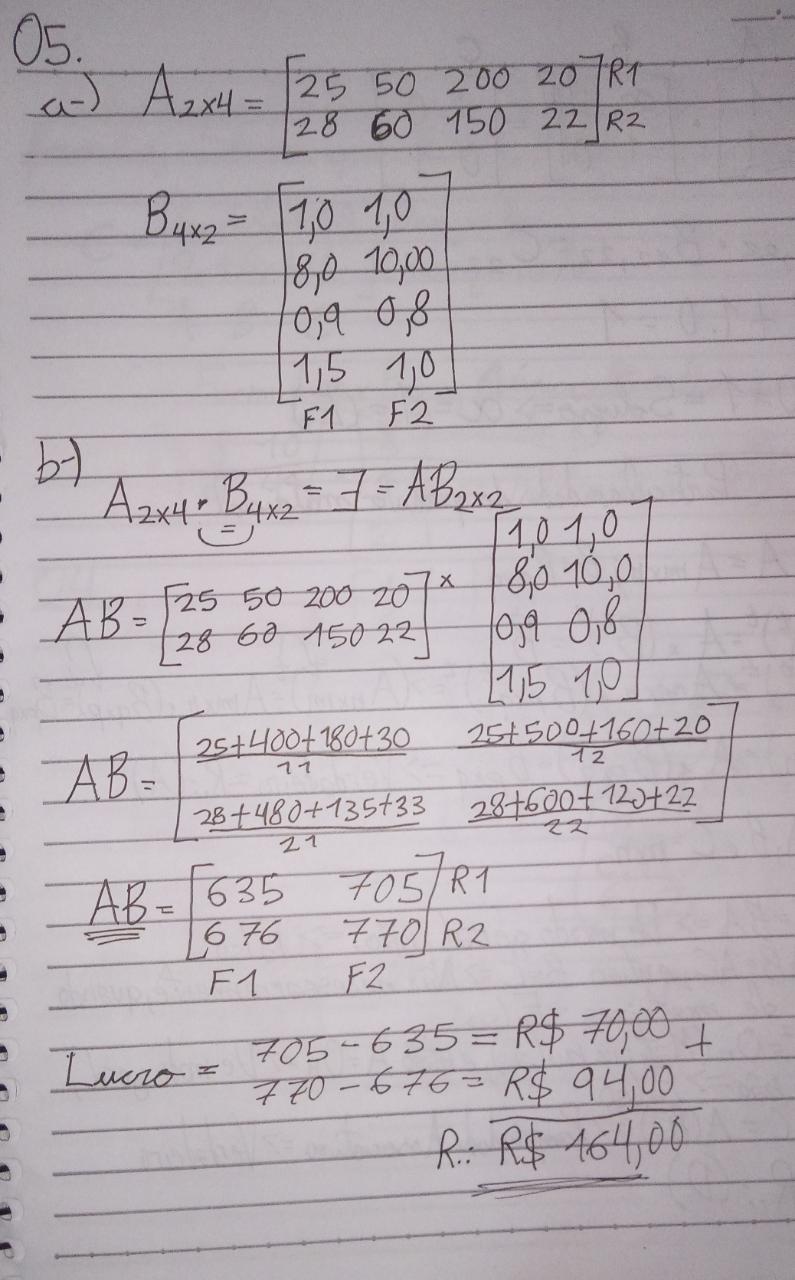 05.
a-) A2x4 = [25 50 200 20] R1
[28 60 150 22] R2
B4x2 = [1,0 1,0]
[8,0 10,00]
[0,9 0,8]
[1,5 1,0]
F1 F2
b-)
A2x4 • B4x2 = ∃ = AB2x2
=
AB = [25 50 200 20] x [1,0 1,0]
[28 60 150 22] [8,0 10,0]
[0,9 0,8]
[1,5 1,0]
AB = [25+400+180+30 25+500+160+20]
11 12
[28+480+135+33 28+600+120+22]
21 22
AB = [635 705] R1
[676 770] R2
F1 F2
Lucro = 705 - 635 = R$ 70,00 +
770 - 676 = R$ 94,00
R.: R$ 164,00